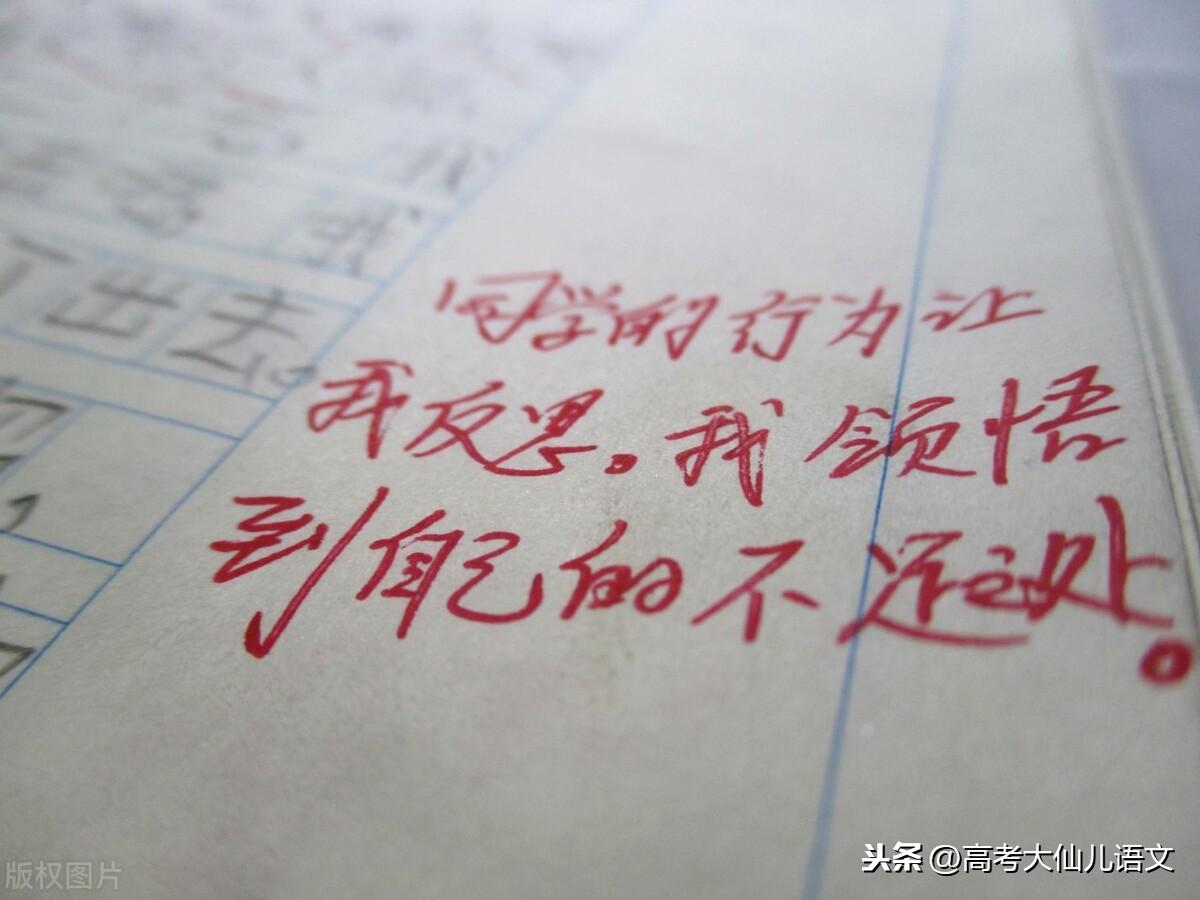 我
我
出去。
同学的行为让
我反思。我领悟
到自己的不足之处。
版权图片
头条 @高考大仙儿语文